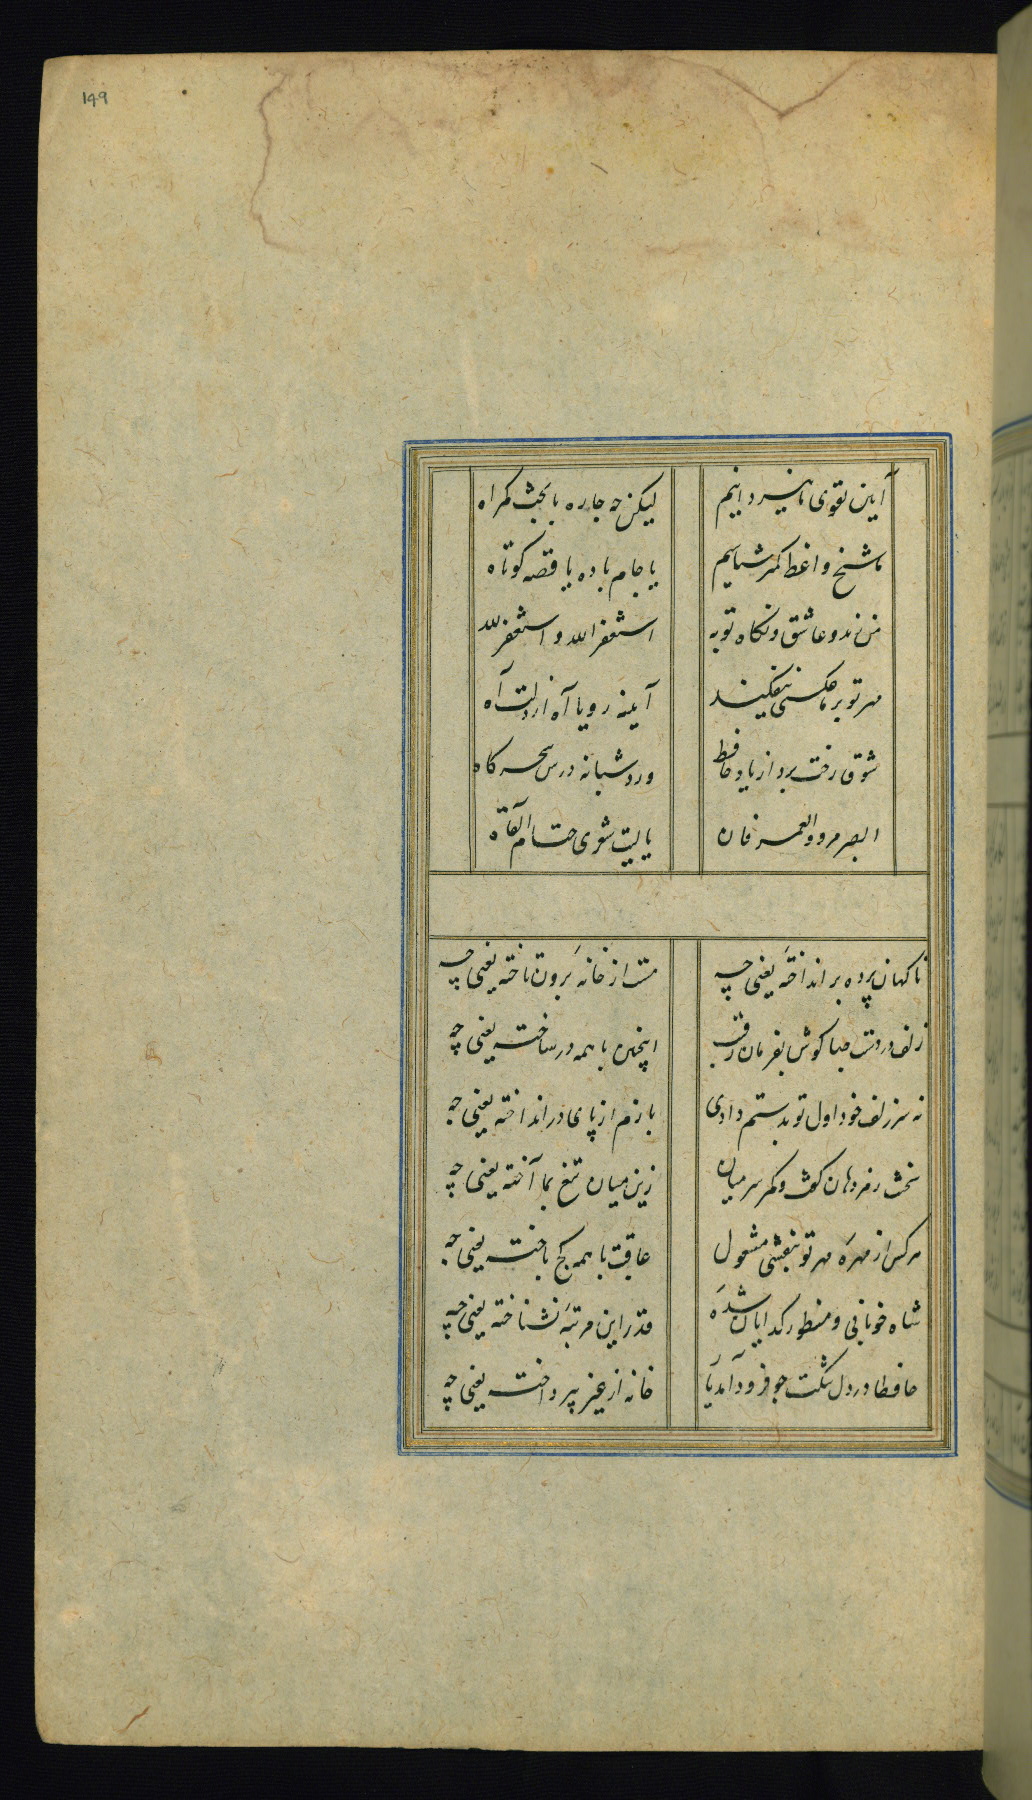 149
آیین تقوی ما نیز دانیم لیکن چه چاره با بخت گمراه
ما شیخ و اعظ کمتر شناسیم یا جام باده یا قصه کوتاه
من رند و عاشق و نگاه توبه استغفر الله و استغفر لله
مهر تو بر ما عکسی نیفکند آینه رویا آه از دلت آه
شوق رخت برد از یاد حافظ ورد شبانه درس سحرگاه
الصبر مر و العمر فان یا لیت شعری حتام القاه
ناکهان پرده بر انداختهٔ یعنی چه مست از خانه برون تاختهٔ یعنی چه
زلف در دست صبا کوش بفرمان رقیب اینچنین با همه در ساختهٔ یعنی چه
نه سر زلف خود اول تو بدستم دادی بازم از پای در انداختهٔ یعنی چه
سخنت رمز دهان کفت و کمر سر میان زین میان تیغ بما آختهٔ یعنی چه
هر کس از مهرهٔ مهر تو بنقشی مشغول عاقبت با همه کج باختهٔ یعنی چه
شاه خوبانی و منظور کدایان شدهٔ قدر این مرتبه نشناختهٔ یعنی چه
حافظا در دل تنکت چو فرود آمد یار خانه از غیر نپرداختهٔ یعنی چه